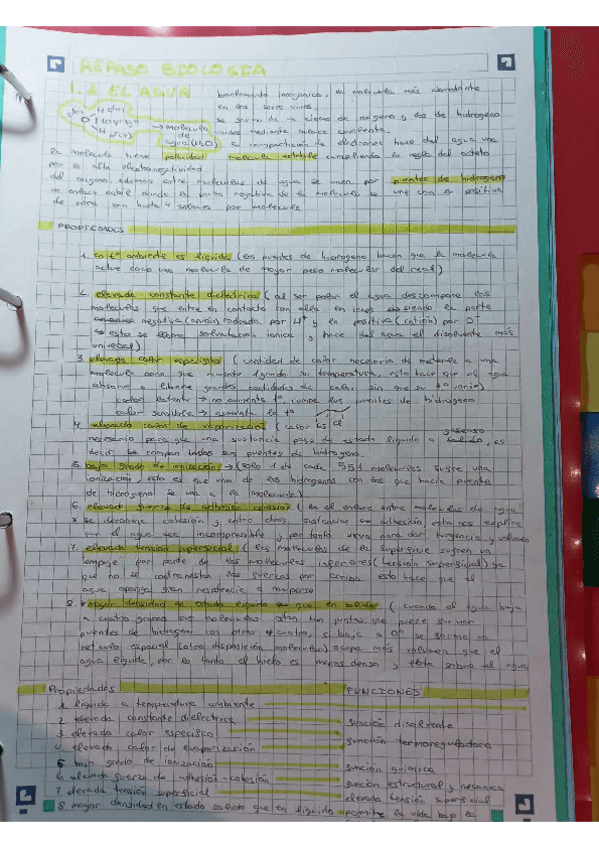 REPASO BIOLOGIA
1. EL AGUA bioelemento inorganico, es molecula más abundante
en los seres vivos
se forma de un átomo de oxígeno y dos de hidrogeno
→ molecula de agua (H2O)
unidos mediante enlace covalente.
la compartición de electrones hace del agua una
la molecula tiene polaridad molecula estable cumpliendo la regla del octeto
por la electronegatividad
del oxigeno además entre moleculas de agua se unen por puentes de hidrogeno
un enlace debil donde la parte negativa de la molecula se une con la positiva
de otra con hasta 4 enlaces por molecula
PROPIEDADES
1. en tº ambiente es liquida (los puentes de hidrogeno hacen que la molecula
actue como una molecula de mayor peso molecular del real)
2. elevada constante dielectrica (al ser polar el agua descompone las
moleculas que entre en contacto con ella en iones siendo el parte
negativa (anión) rodeada por H+ y la positiva (catión) por O-
esto se llama solvatación ionica y hace del agua el disolvente más
universal)
3. elevado calor especifico (cantidad de calor necesaria de meterle a una
molecula para que aumente 1 grado su temperatura, esto hace que el agua
absorva o libere grandes cantidades de calor sin que su tº varie)
calor latente → no aumenta tº, rompe los puentes de hidrogeno
calor sensible → aumenta la tº
4. elevado calor de vaporización (calor
necesario para que una sustancia pase de estado liquido a gaseoso, es
decir se rompan todos sus puentes de hidrogeno.
5. bajo grado de ionización → (solo 1 de cada 551 moleculas sufre una
ionización, esto es que uno de los hidrogenos con los que hacia puente
de hidrogeno se une a la molecula)
6. elevada fuerza de adhesión cohesión (en el enlace entre moleculas de agua
se denomina cohesión y entre otras sustancias adhesión esto nos explica
que el agua sea incompresible y por tanto sirva para dar turgencia y volumen
7. elevada tensión superficial (las moleculas de la superficie sufren un
empuje por parte de las moleculas inferiores (tensión superficial) ya
que no se contrarestan las fuerzas por arriba esto hace que el
agua oponga gran resistencia a romperse
8. mayor densidad en estado liquido que en solido (cuando el agua baja
a cuatro grados sus moleculas estan tan juntas que puede formar
puentes de hidrogeno con otras cuatro, si baja a 0º se forma un
reticulo espacial (otra disposición molecular) ocupa más volumen que el
agua liquida, por lo tanto el hielo es menos denso y flota sobre el agua
Propiedades FUNCIONES
1. liquida a temperatura ambiente
2. elevada constante dielectrica función disolvente
3. elevado calor especifico
4. elevado calor de evaporización función termoreguladora
5 bajo grado de ionización función quimica
6. elevada fuerza de adhesión-cohesión función estructural y mecanica
7. elevada tensión superficial elevada tensión superficial
8. mayor densidad en estado solido que en liquido permite la vida bajo el